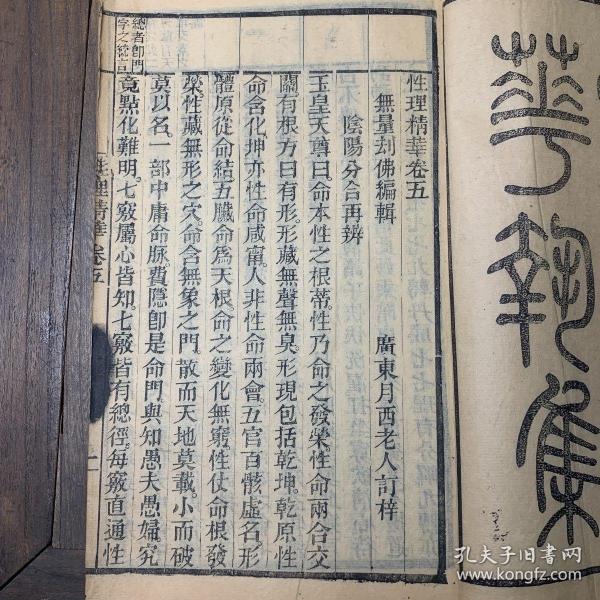 性理精華卷五
無量刦佛編輯　廣東月西老人訂梓
陰陽分合再辨
玉皇天尊曰。命本性之根蒂。性乃命之發榮。性命兩合交
關有根方曰有形。形藏無聲無臭。形現包括乾坤。乾原性
命含化坤亦性命咸甯。人非性命兩會。五官百骸虛名。形
體原從命結五臟命爲天根。命之變化無窮。性仗命根發
榮。性藏無形之穴。命含無象之門。散而天地莫載。小而破
莫以名。一部中庸命脉。費隱卽是命門。與知愚夫愚婦。究
竟點化難明。七竅屬心皆知。七竅皆有總徑。每竅直通性
總者卽門
字之
性理精華 卷五
一
華
集
孔夫子旧书网
www.kongfz.com